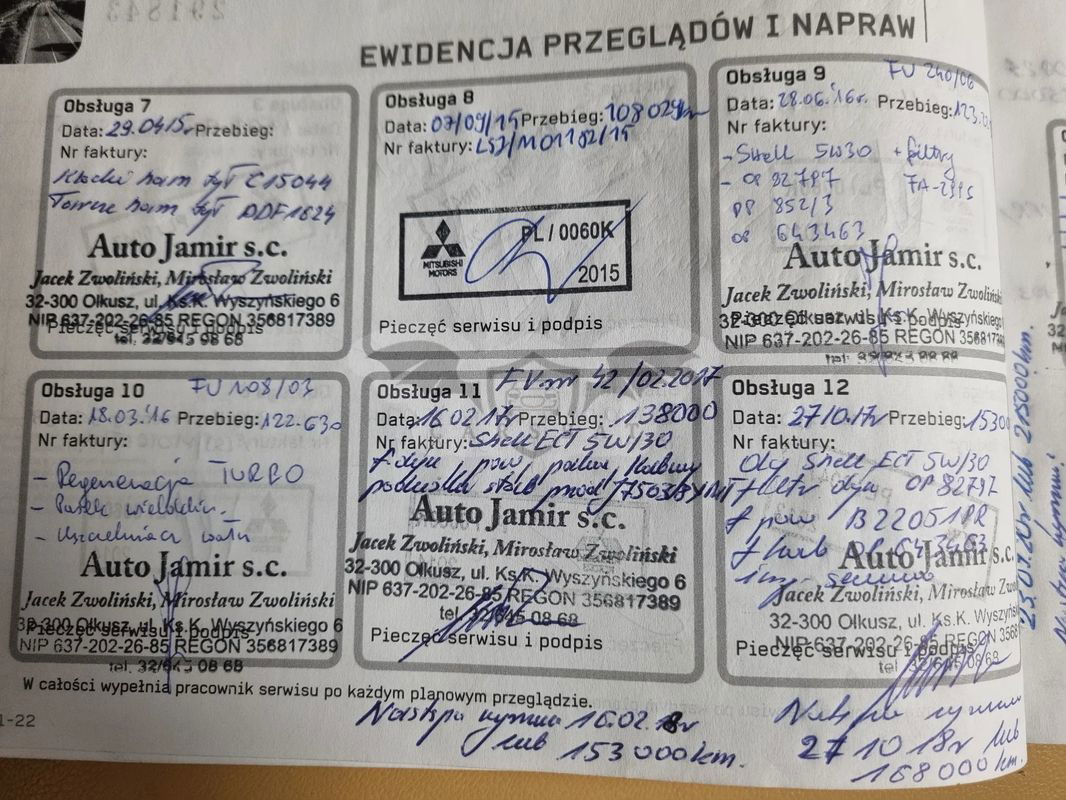 EWIDENCJA PRZEGLĄDÓW I NAPRAW
Obsługa 7
Data: 29.04.15r Przebieg:
Nr faktury:
Klocki ham tył C15044
Tarcze ham tył DDF1824
Auto Jamir s.c.
Jacek Zwoliński, Mirosław Zwoliński
32-300 Olkusz, ul. Ks.K. Wyszyńskiego 6
NIP 637-202-26-85 REGON 356817389
Pieczęć serwisu i podpis
tel. 32/645 08 68
Obsługa 8
Data: 07/09/15 Przebieg: 108029km
Nr faktury: LSJ/M01182/15
MITSUBISHI MOTORS
PL / 0060K
2015
Pieczęć serwisu i podpis
Obsługa 9 FU 240/06
Data: 28.06.'16r. Przebieg: 123.
Nr faktury:
- Shell 5W30 + filtry
- OP 82797 FA-299S
pp 852/3
os 643463
Auto Jamir s.c.
Jacek Zwoliński, Mirosław Zwoliński
32-300 Olkusz, ul. Ks.K. Wyszyńskiego
Pieczęć serwisu i podpis
NIP 637-202-26-85 REGON 3568173
Obsługa 10 FU 108/03
Data: 18.03.'16 Przebieg: 122.630
Nr faktury:
- Regeneracja TURBO
- Pasek wieloklin.
- Uszczelniacz wału
Auto Jamir s.c.
Jacek Zwoliński, Mirosław Zwoliński
32-300 Olkusz, ul. Ks.K. Wyszyńskiego 6
Pieczęć serwisu i podpis
NIP 637-202-26-85 REGON 356817389
tel. 32/645 08 68
Obsługa 11 FV nr 42/02.2017
Data: 16 02 17r Przebieg: 138000
Nr faktury: Shell ECT 5W/30
f oleju pow paliw, kabiny
poduszka stab przód
Auto Jamir s.c.
Jacek Zwoliński, Mirosław Zwoliński
32-300 Olkusz, ul. Ks.K. Wyszyńskiego 6
NIP 637-202-26-85 REGON 356817389
tel. 32/645 08 68
Pieczęć serwisu i podpis
Obsługa 12
Data: 27.10.17r Przebieg: 15300
Nr faktury:
Olej Shell ECT 5W/30
filtr oleju OP 82797
f pow B22051PR
f kab
Auto Jamir s.c.
Jacek Zwoliński, Mirosław Zwoliń
32-300 Olkusz, ul. Ks.K. Wyszyń
NIP 637-202-26-85 REGON 356
Pieczęć serwisu i podpis
tel. 32/645 08 68
W całości wypełnia pracownik serwisu po każdym planowym przeglądzie.
1-22
Następa wymiana 16.02.18r
lub 153 000km.
Następna wymiana
27 10 18r lub
168000 km.
23.07.20r lub 215000km.